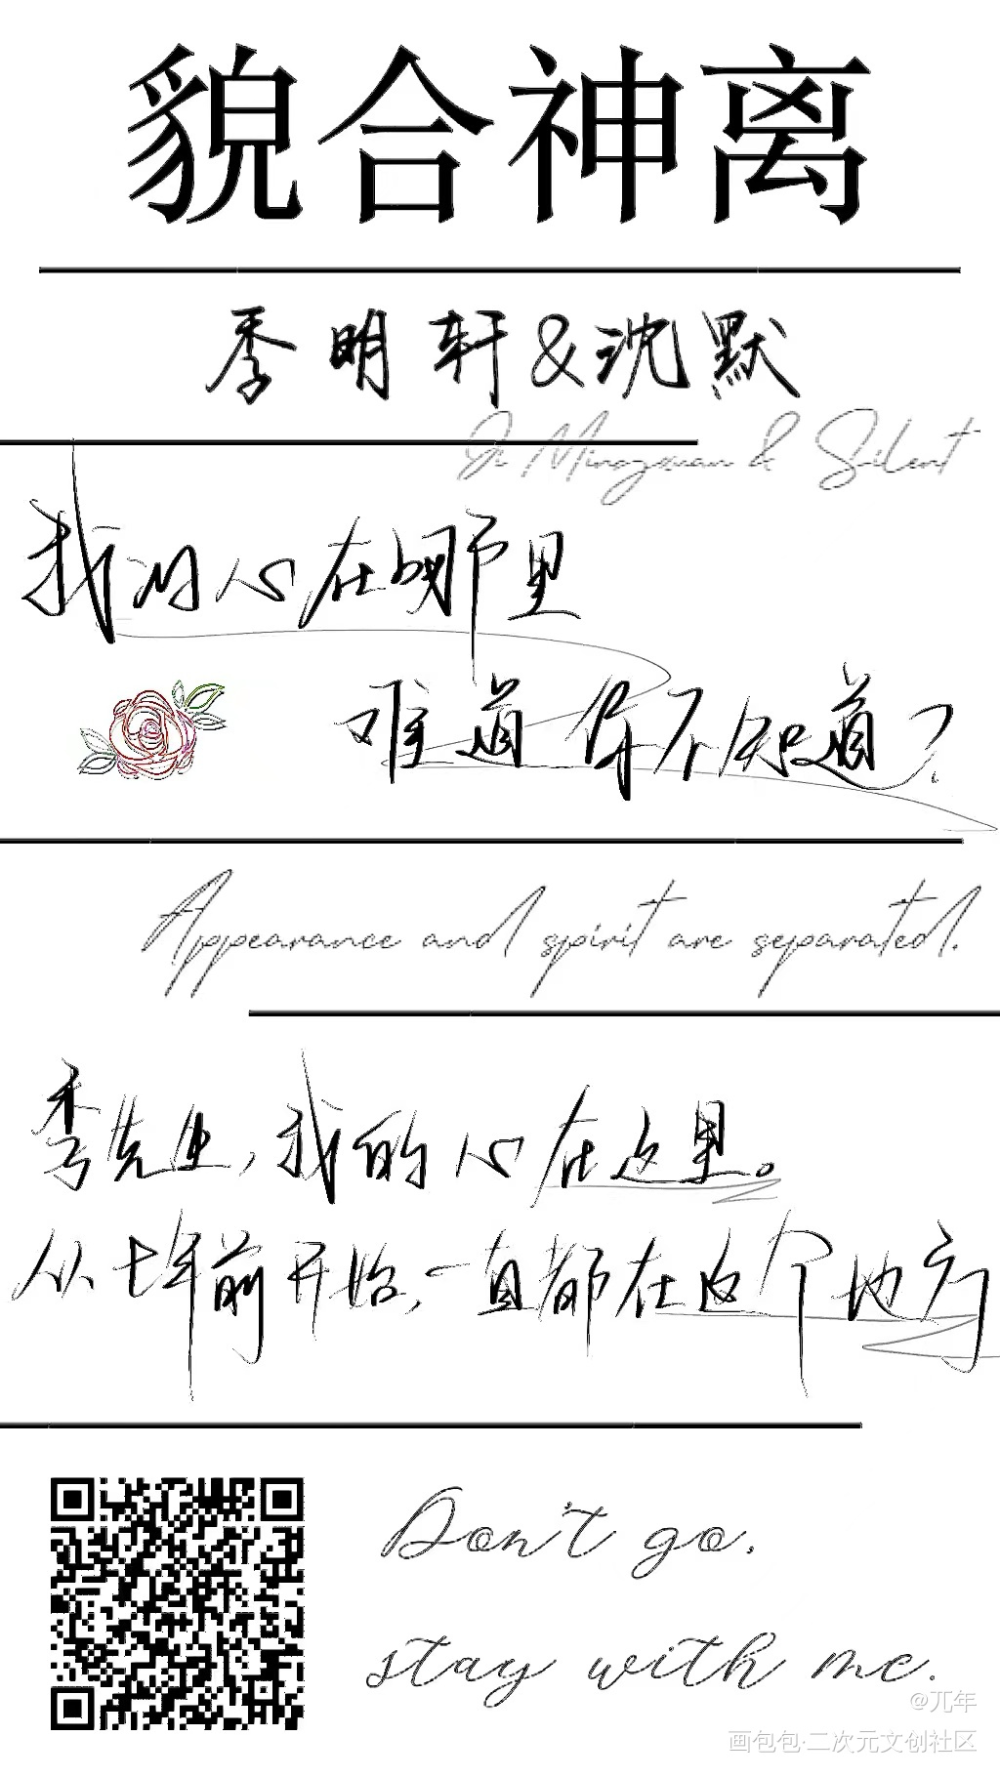 貌合神离
季明轩&沈默
Ji Mingxuan & Silent
我的心在哪里
难道你不知道？
Appearance and spirit are separated.
季先生，我的心在这里。
从七年前开始，一直都在这个地方
Don't go,
stay with me.
@兀年
画包包·二次元文创社区